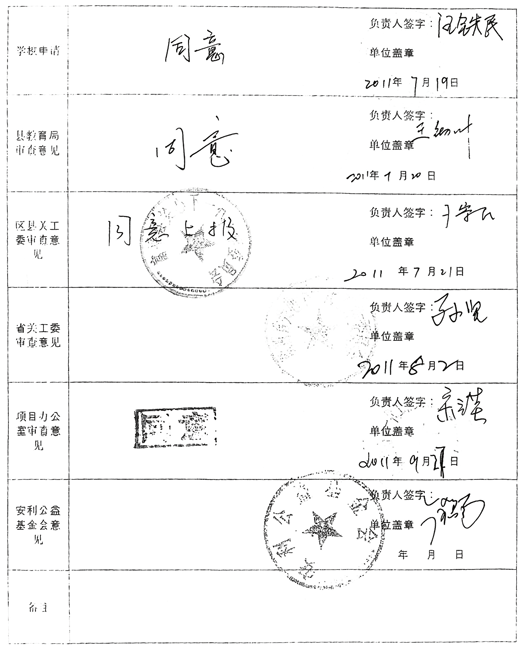 学校申请
同意
负责人签字：汪铁民
单位盖章
2011年7月19日
县教育局
审查意见
同意
负责人签字：
单位盖章
2011年7月20日
区县关工
委审查意
见
同意上报
负责人签字：
单位盖章
2011 年7月21日
省关工委
审查意见
负责人签字：
单位盖章
2011年8月2日
项目办公
室审查意
见
负责人签字：
单位盖章
2011年9月
日
安利公益
基金会意
见
安利公益基金会
负责人签字：
单位盖章
年 月 日